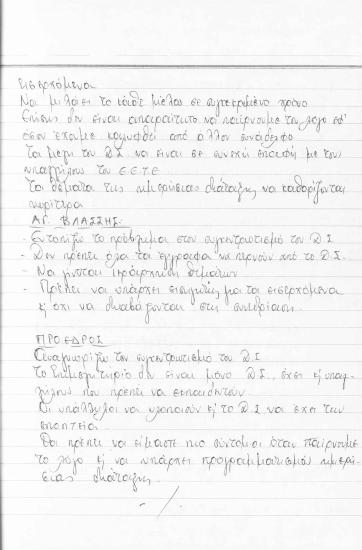 Εισερχόμενα
Να μιλάει το κάθε μέλος σε συγκεκριμένο χρόνο
Επίσης δεν είναι απαραίτητο να παίρνουμε τον λόγο εφ'
όσον έχουμε καλυφθεί από άλλον συνάδελφο
Τα μέλη του Δ.Σ. να είναι σε συνεχή επαφή με τους
υπαλλήλους του Ε.Ε.Τ.Ε
Τα θέματα της ημερήσιας διάταξης να καθορίζονται
νωρίτερα
ΑΓ. ΒΛΑΣΣΗΣ
- Εντοπίζω το πρόβλημα στον συγκεντρωτισμό του Δ.Σ.
- Δεν πρέπει όλα τα έγγραφα να περνούν από το Δ.Σ.
- Να γίνεται ιεράρχηση θεμάτων
- Πρέπει να υπάρχει εισηγητής για τα εισερχόμενα
κ' όχι να διαβάζονται στη συνεδρίαση
ΠΡΟΕΔΡΟΣ
Αναγνωρίζω τον συγκεντρωτισμό του Δ.Σ
Το Επιμελητήριο δεν είναι μόνο Δ.Σ., έχει κ' υπαλ-
λήλους που πρέπει να
Οι υπάλληλοι να υλοποιούν κ' το Δ.Σ να έχει την
εποπτεία.
Θα πρέπει να είμαστε πιο σύντομοι όταν παίρνουμε
το λόγο κ' να υπάρχει προγραμματισμός ημερή-
σιας διάταξης.